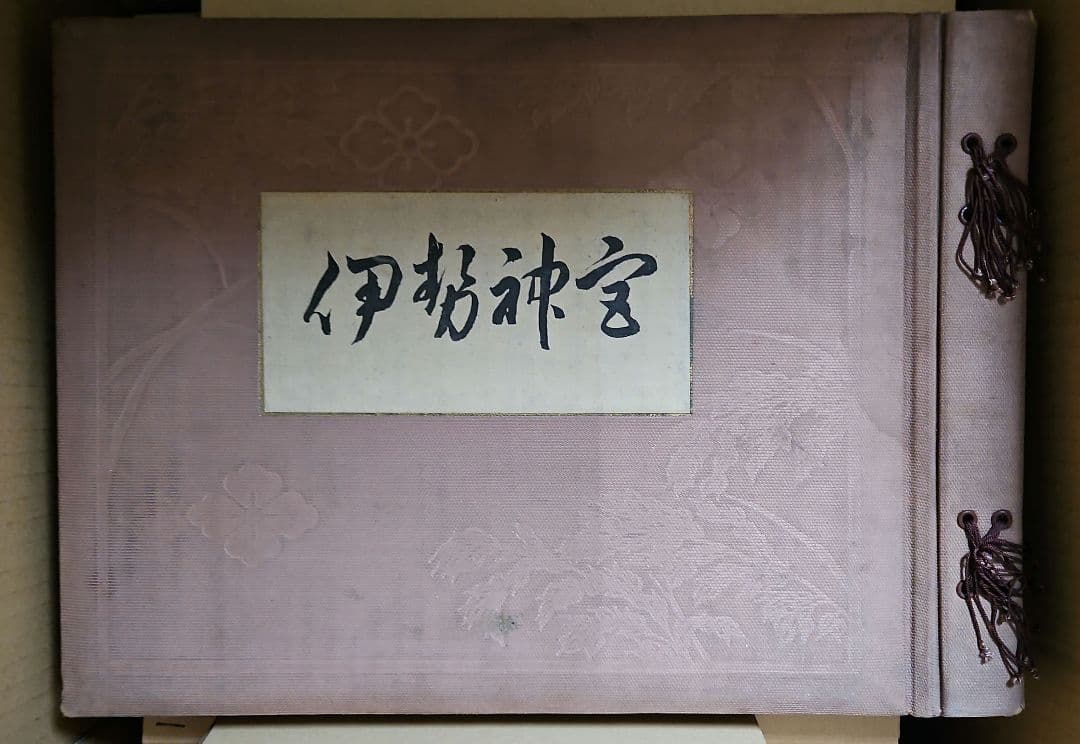 伊勢神宮